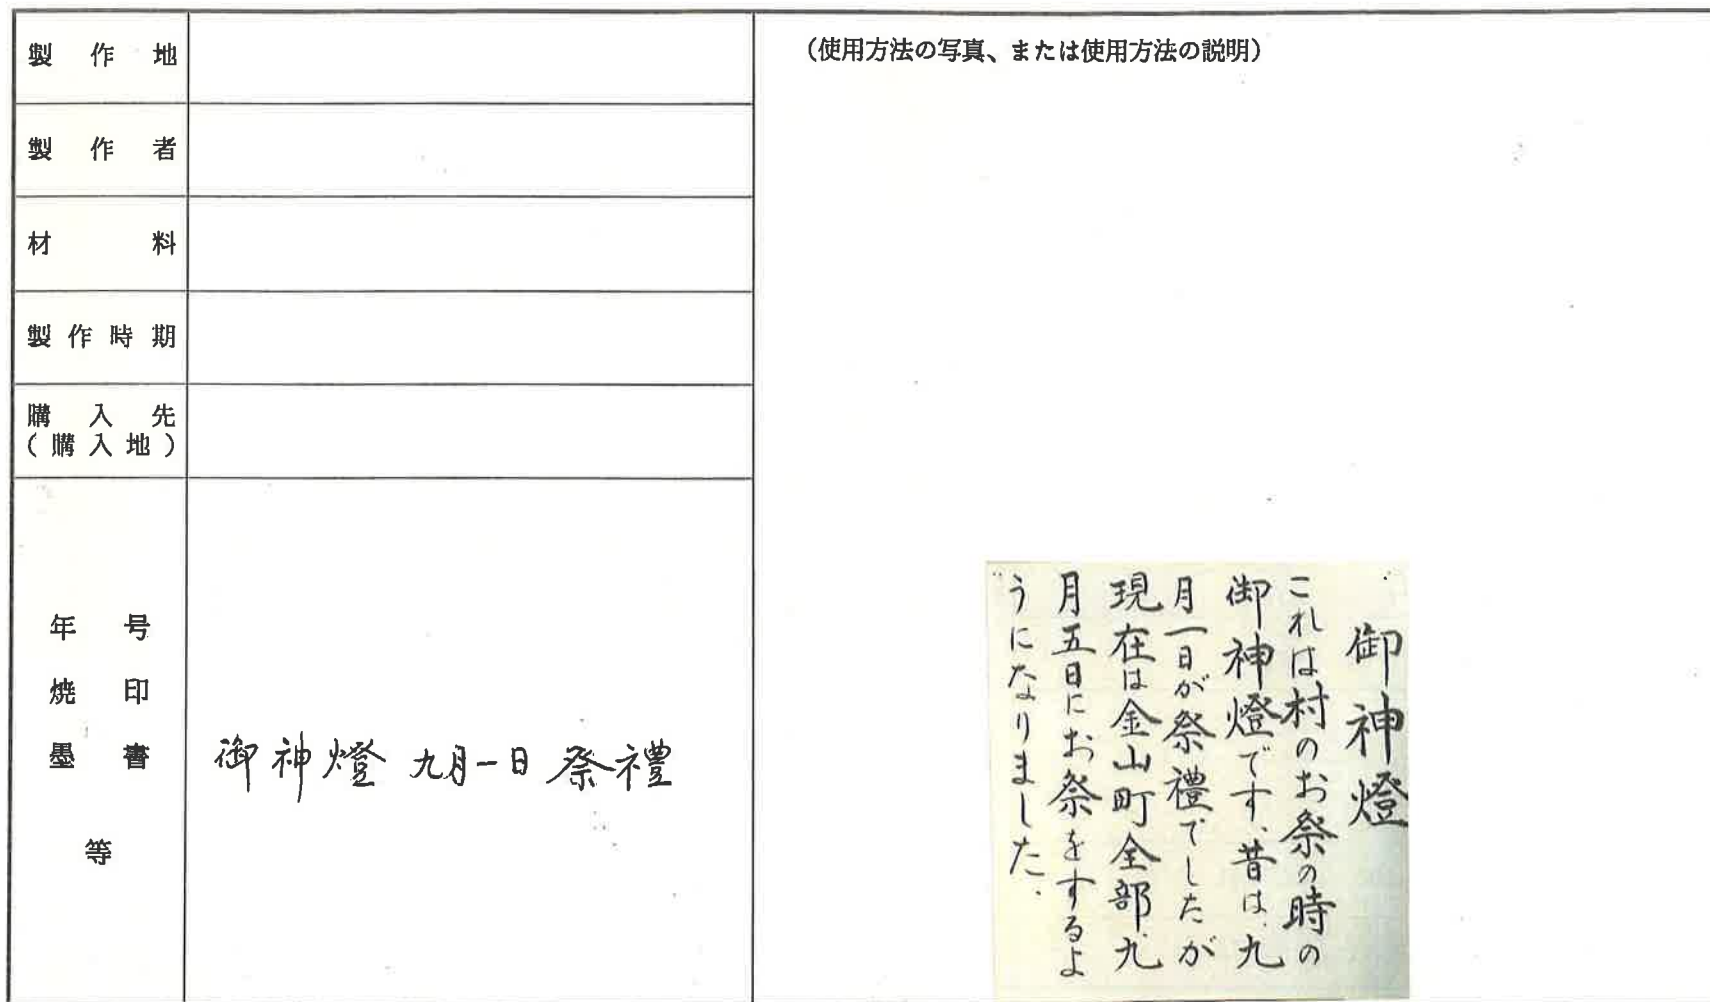 製作地
製作者
材料
製作時期
購入先
(購入地)
年号
焼印
墨書
等
御神燈 九月一日 祭禮
(使用方法の写真、または使用方法の説明)
御神燈
これは村のお祭の時の
御神燈です、昔は、九
月一日が祭禮でしたが
現在は金山町全部、九
月五日にお祭をするよ
うになりました.